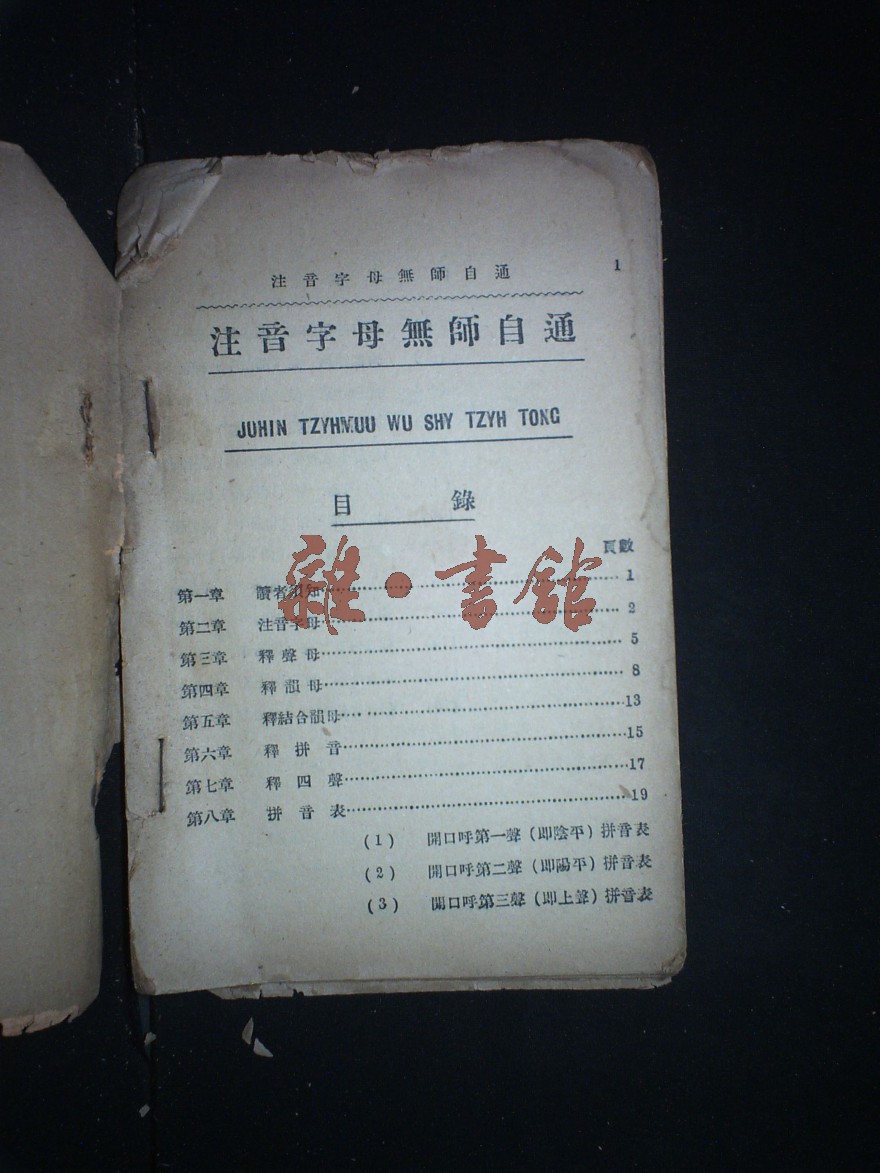 注音字母無師自通 1
注音字母無師自通
JUHIN TZYHMUU WU SHY TZYH TONG
目錄
頁數
第一章 讀者須知 1
第二章 注音字母 2
第三章 釋聲母 5
第四章 釋韻母 8
第五章 釋結合韻母 13
第六章 釋拼音 15
第七章 釋四聲 17
第八章 拼音表 19
(1) 開口呼第一聲(即陰平)拼音表
(2) 開口呼第二聲(即陽平)拼音表
(3) 開口呼第三聲(即上聲)拼音表
雜·書館